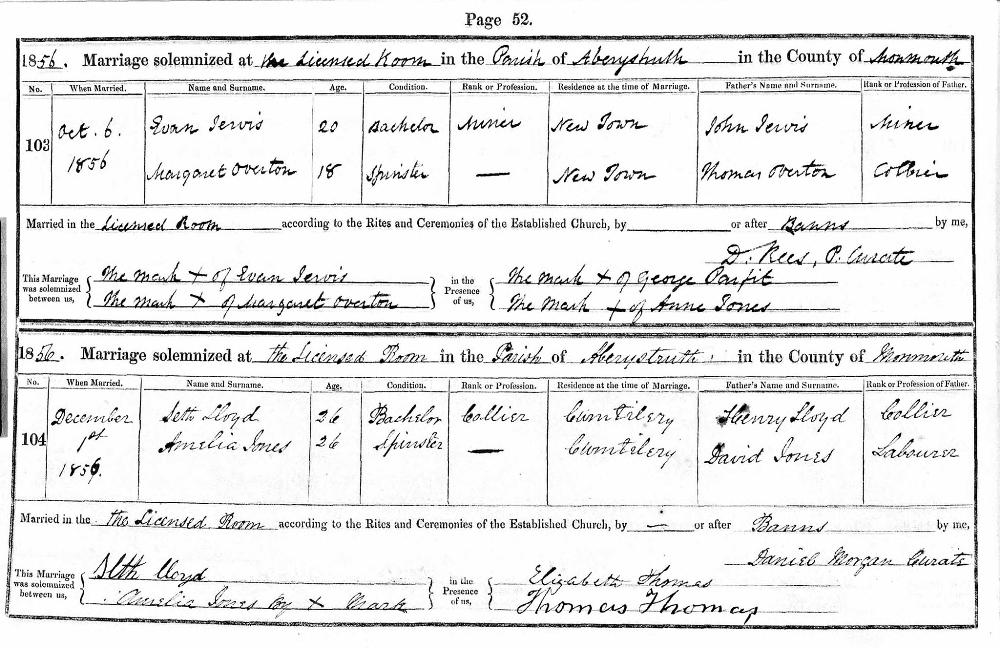 Page 52.
1856. Marriage solemnized at the Licensed Room in the Parish of Aberystruth in the County of Monmouth
No. When Married. Name and Surname. Age. Condition. Rank or Profession. Residence at the time of Marriage. Father's Name and Surname. Rank or Profession of Father.
103 Oct. 6. 1856 Evan Jervis 20 Bachelor Miner New Town John Jervis Miner
Margaret Overton 18 Spinster — New Town Thomas Overton Collier
Married in the Licensed Room according to the Rites and Ceremonies of the Established Church, by or after Banns by me,
D. Rees, P. Curate
This Marriage was solemnized between us, The mark + of Evan Jervis
The mark + of Margaret Overton
in the Presence of us, The mark + of George Parfit
The mark + of Anne Jones
1856. Marriage solemnized at the Licensed Room in the Parish of Aberystruth in the County of Monmouth
No. When Married. Name and Surname. Age. Condition. Rank or Profession. Residence at the time of Marriage. Father's Name and Surname. Rank or Profession of Father.
104 December 1st 1856. Seth Lloyd 26 Bachelor Collier Cwmtilery Henry Lloyd Collier
Amelia Jones 26 Spinster — Cwmtilery David Jones Labourer
Married in the the Licensed Room according to the Rites and Ceremonies of the Established Church, by — or after Banns by me,
Daniel Morgan Curate
This Marriage was solemnized between us, Seth Lloyd
Amelia Jones by + Mark
in the Presence of us, Elizabeth Thomas
Thomas Thomas